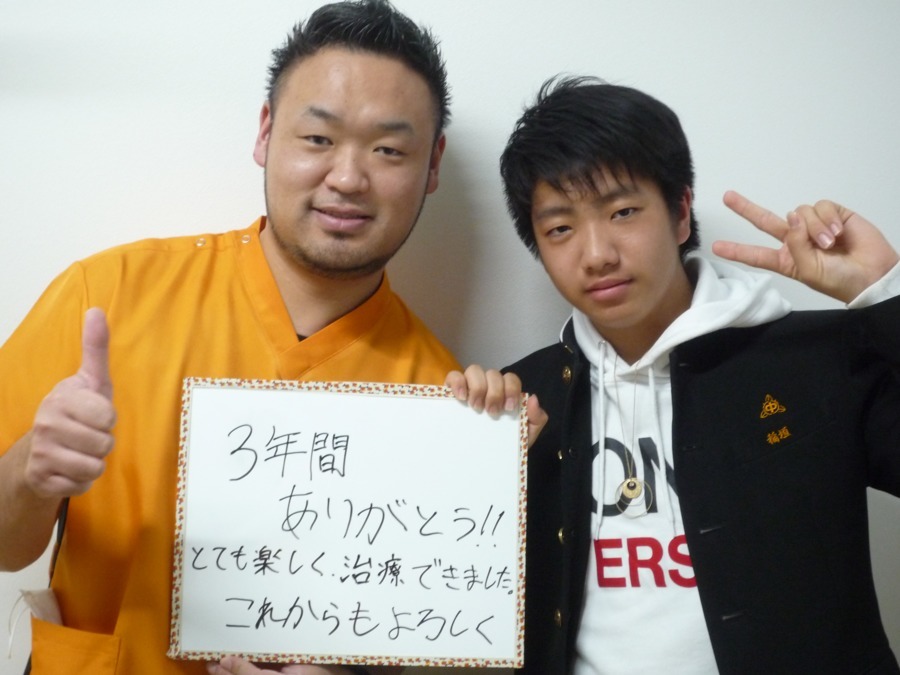 3年間
ありがとう!!
とても楽しく、治療できました。
これからもよろしく
中
稲垣
ON
ERS